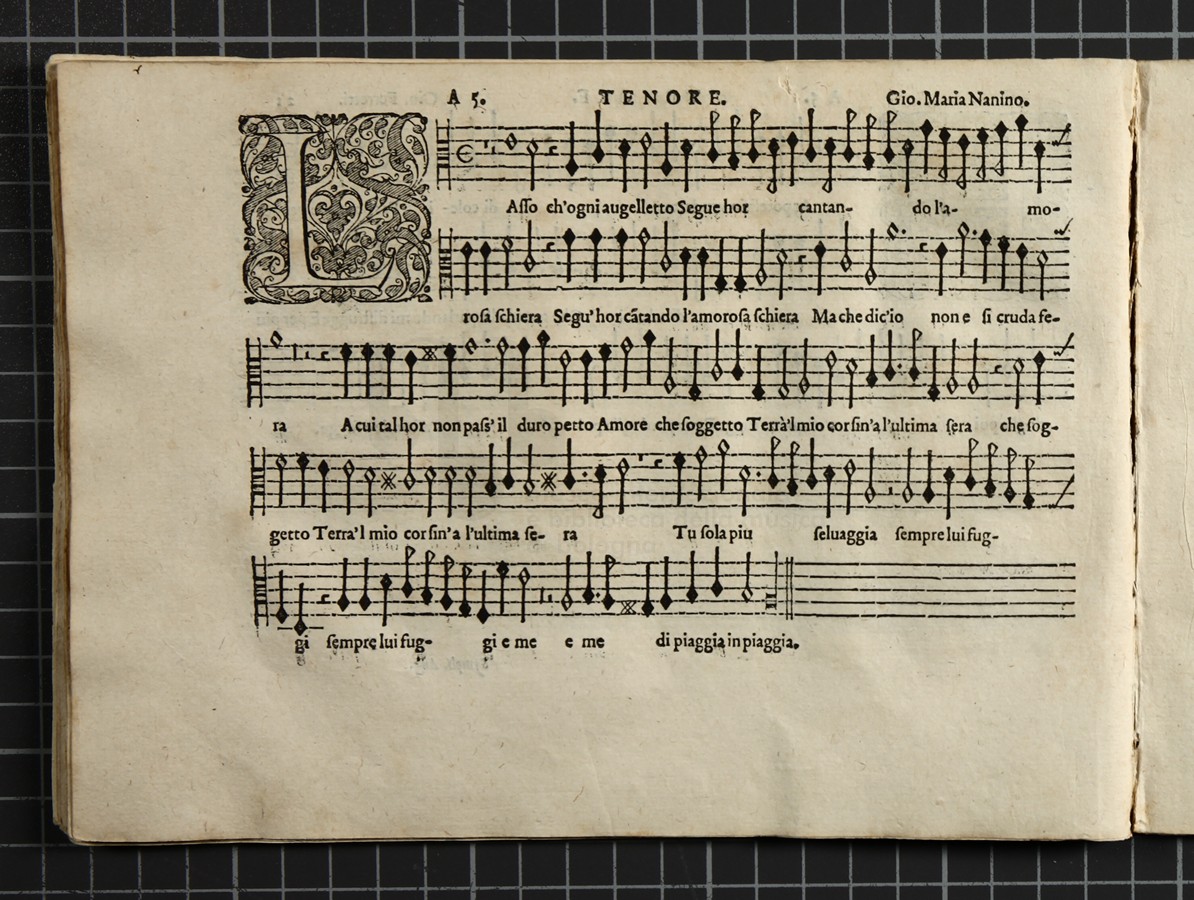 A 5. TENORE. Gio. Maria Nanino.
LAſſo ch'ogni augelletto Segue hor cantan- do l'a- mo-
roſa ſchiera Segu' hor cãtando l'amoroſa ſchiera Ma che dic'io non e ſi cruda fe-
ra A cui tal hor non paſs' il duro petto Amore che ſoggetto Terrà'l mio cor ſin'a l'ultima ſera che ſog-
getto Terra'l mio cor ſin'a l'ultima ſe- ra Tu ſola piu ſeluaggia ſempre lui fug-
gi ſempre lui fug- gi e me e me di piaggia in piaggia.